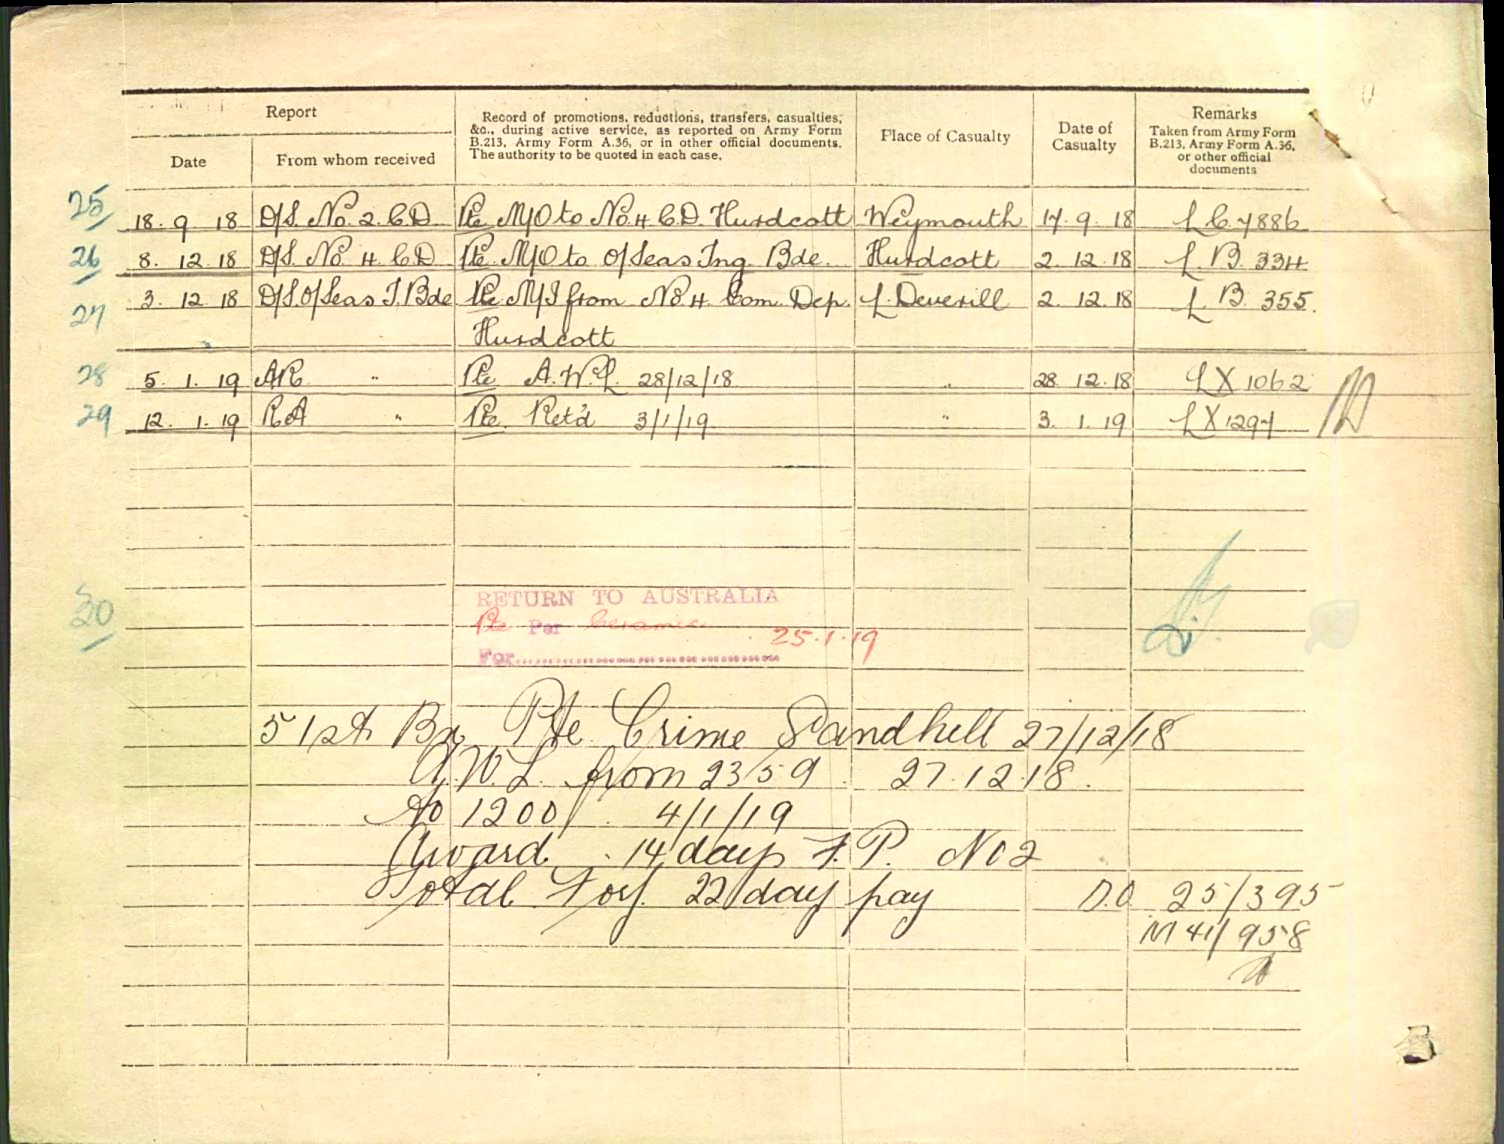 Report
Record of promotions, reductions, transfers, casualties, &c., during active service, as reported on Army Form B.213, Army Form A.36, or in other official documents. The authority to be quoted in each case.
Place of Casualty
Date of Casualty
Remarks
Taken from Army Form B.213, Army Form A.36, or other official documents
Date
From whom received
25 18. 9 18 D/S. No. 2. C.D. Pte M/O to No. 4 C.D. Hurdcott Weymouth 17. 9. 18 L C 7886
26 8. 12 18 D/S. No 4 C D Pte. M/O to O/Seas Tng Bde. Hurdcott 2. 12. 18 L B 334
27 3. 12 18 D/S. O/Seas T. Bde Pte M/I from No. 4. Com. Dep. L. Deverill 2. 12. 18 L B 355.
Hurdcott
28 5. 1. 19 AR " Pte A.W.L. 28/12/18 " 28. 12. 18 L X 1062
29 12. 1. 19 R A " Pte. Ret'd 3/1/19 " 3. 1. 19 L X 1297
30
RETURN TO AUSTRALIA
Pte Per Ceramic 25.1.19
For
51st Bn Pte Crime Sandhill 27/12/18
A.W.L. from 2359 27.12.18.
to 1200 4/1/19
Award. 14 days F.P. No 2
Total Forf. 22 days pay D.O 25/395
M 41/958